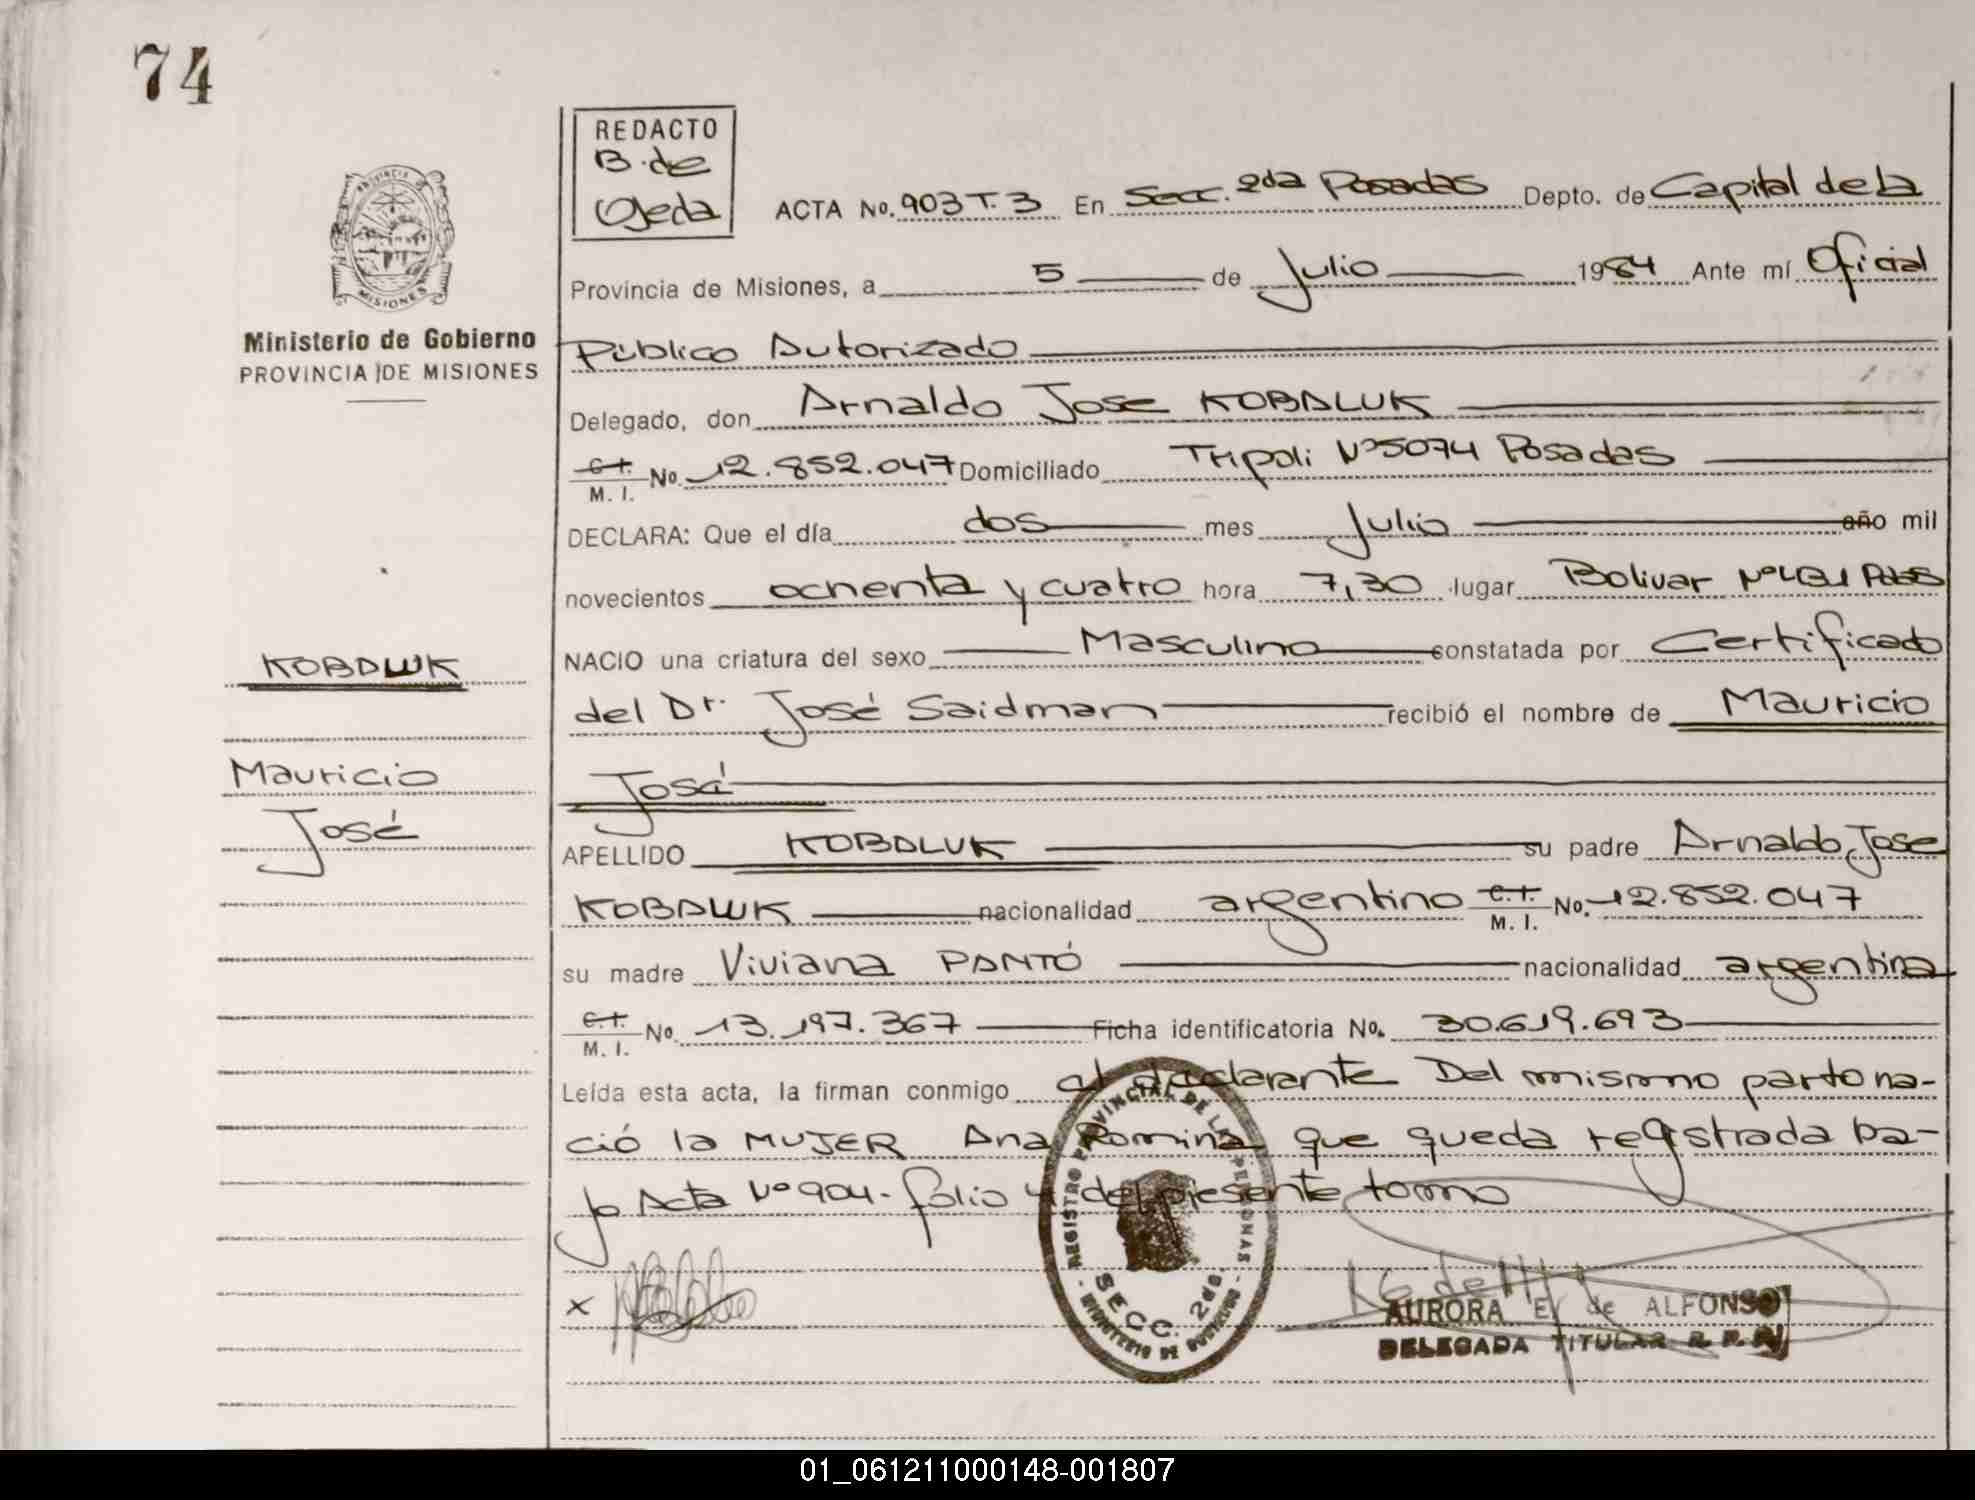 74
REDACTO
B. de
Ojeda
ACTA No. 903 T. 3 En Secc. 2da Posadas Depto. de Capital de la
Provincia de Misiones, a 5 de Julio 1984 Ante mí Oficial
Público Autorizado
Delegado, don Arnaldo Jose KOBALUK
C.I. M. I. No. 12.852.047 Domiciliado Tripoli Nº5074 Posadas
DECLARA: Que el día dos mes Julio año mil
novecientos ochenta y cuatro hora 7,30 lugar Bolivar
NACIO una criatura del sexo Masculino constatada por Certificado
del Dr. José Saidman recibió el nombre de Mauricio
José
APELLIDO KOBALUK su padre Arnaldo Jose
KOBALUK nacionalidad argentino C.I. M. I. No. 12.852.047
su madre Viviana PANTÓ nacionalidad argentina
C.I. M. I. No. 13.197.367 Ficha identificatoria No. 30.619.693
Leída esta acta, la firman conmigo el declarante Del mismo parto na-
ció la MUJER Ana Romina que queda registrada ba-
jo Acta Nº 904 - folio 4 del presente tomo
PROVINCIA
MISIONES
Ministerio de Gobierno
PROVINCIA DE MISIONES
KOBALUK
Mauricio
José
x
REGISTRO PROVINCIAL DE LAS PERSONAS
SECC. 2da.
MINISTERIO DE GOBIERNO
AURORA E. de ALFONSO
DELEGADA TITULAR R. P. P.
01_061211000148-001807